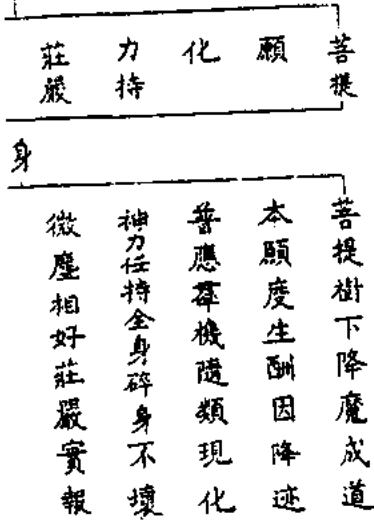 菩提
願
化
力持
莊嚴
身
菩提樹下降魔成道
本願度生酬因降迹
普應羣機隨類現化
神力任持全身碎身不壞
微塵相好莊嚴實報